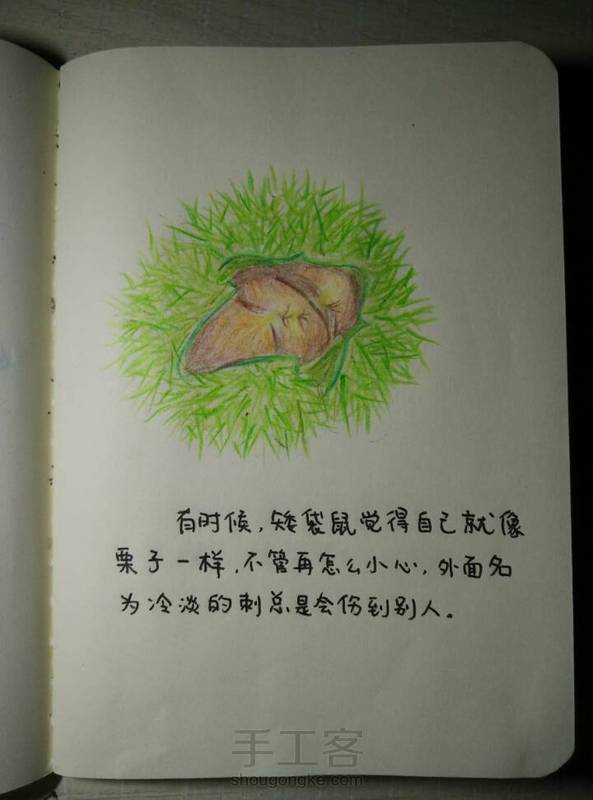 有时候,矮袋鼠觉得自己就像
栗子一样,不管再怎么小心,外面名
为冷淡的刺总是会伤到别人。
手工客
shougongke.com